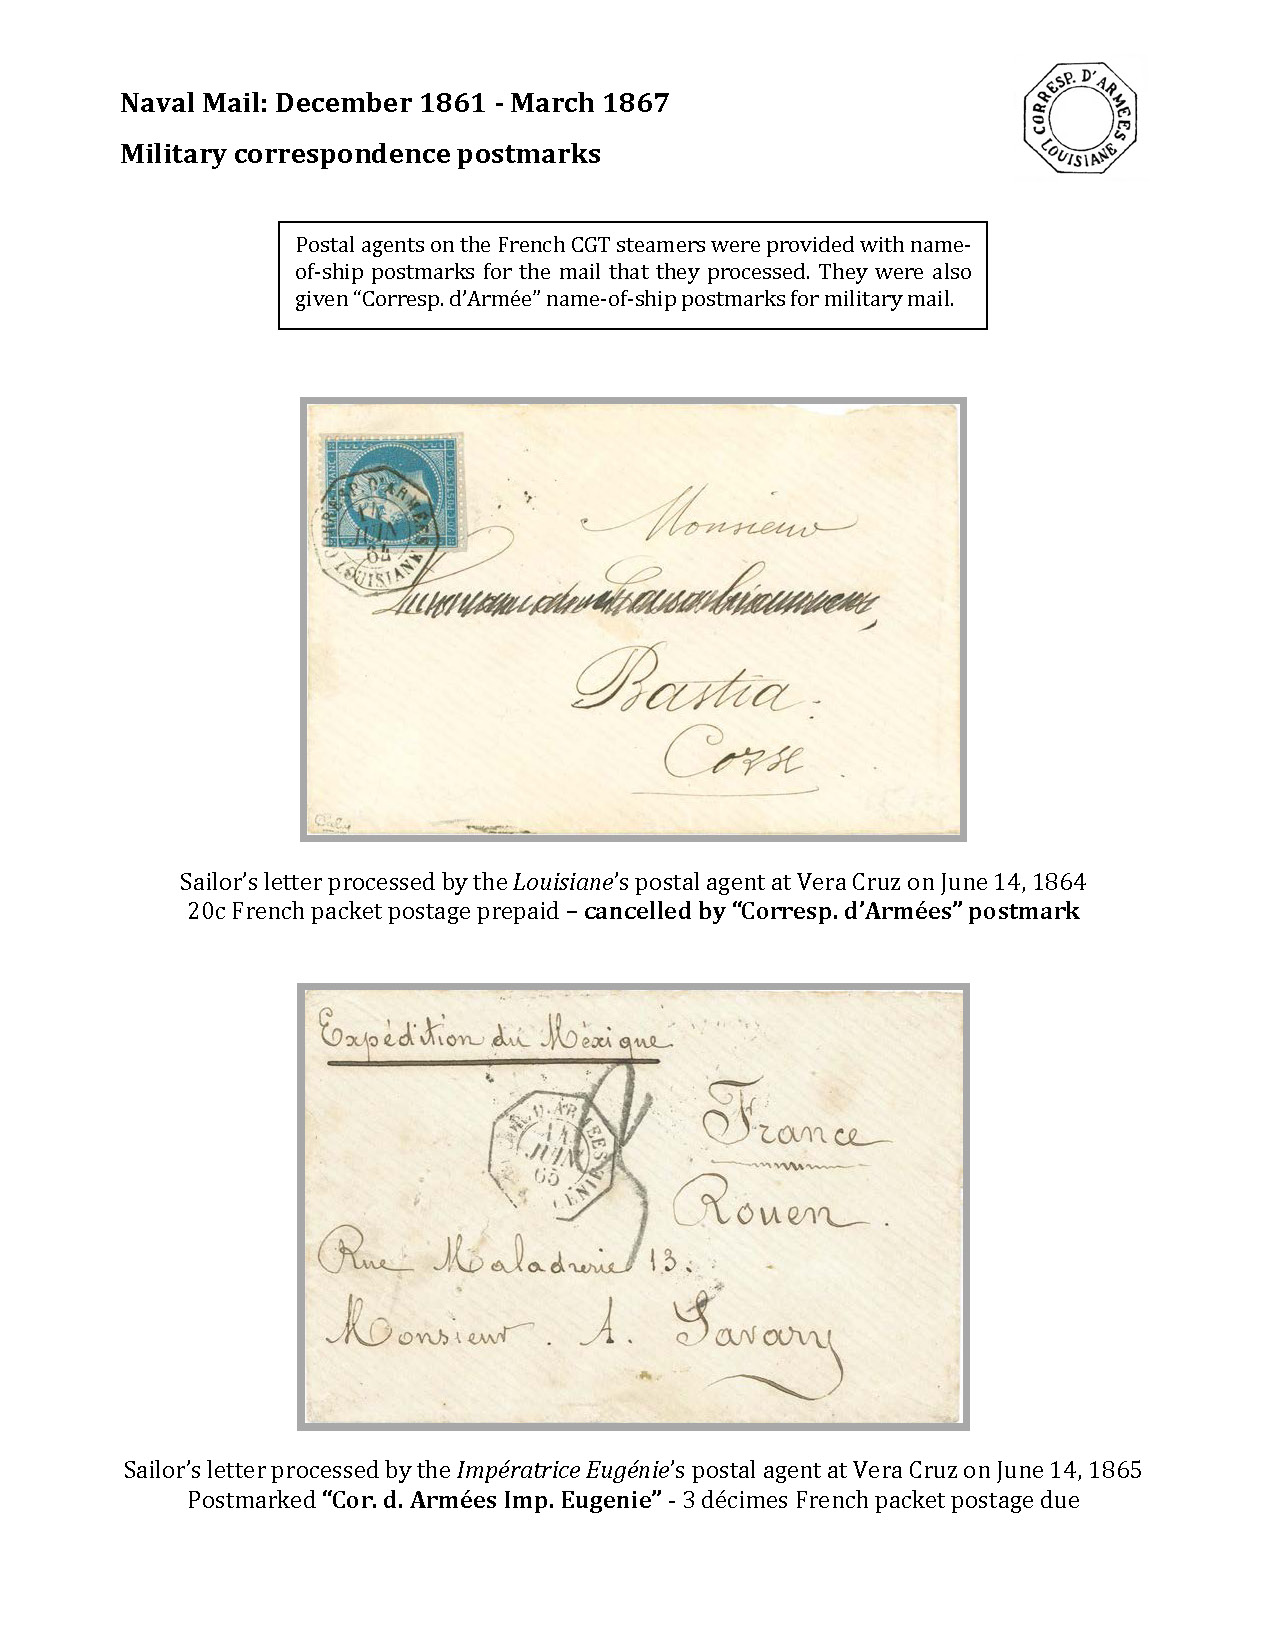 Naval Mail: December 1861 - March 1867
CORRESP. D'ARMEES
LOUISIANE
Military correspondence postmarks
Postal agents on the French CGT steamers were provided with name-
of-ship postmarks for the mail that they processed. They were also
given “Corresp. d’Armée” name-of-ship postmarks for military mail.
CORRESP. D'ARMEES
JUIN
64
LOUISIANE
Monsieur
Bastia.
Corse
Sailor’s letter processed by the Louisiane’s postal agent at Vera Cruz on June 14, 1864
20c French packet postage prepaid – cancelled by “Corresp. d’Armées” postmark
Expédition du Méxique.
D. ARMEES
14
JUIN
65
ENIE
France
Rouen.
Rue Maladrerie 13.
Monsieur. A. Savary
Sailor’s letter processed by the Impératrice Eugénie’s postal agent at Vera Cruz on June 14, 1865
Postmarked “Cor. d. Armées Imp. Eugenie” - 3 décimes French packet postage due